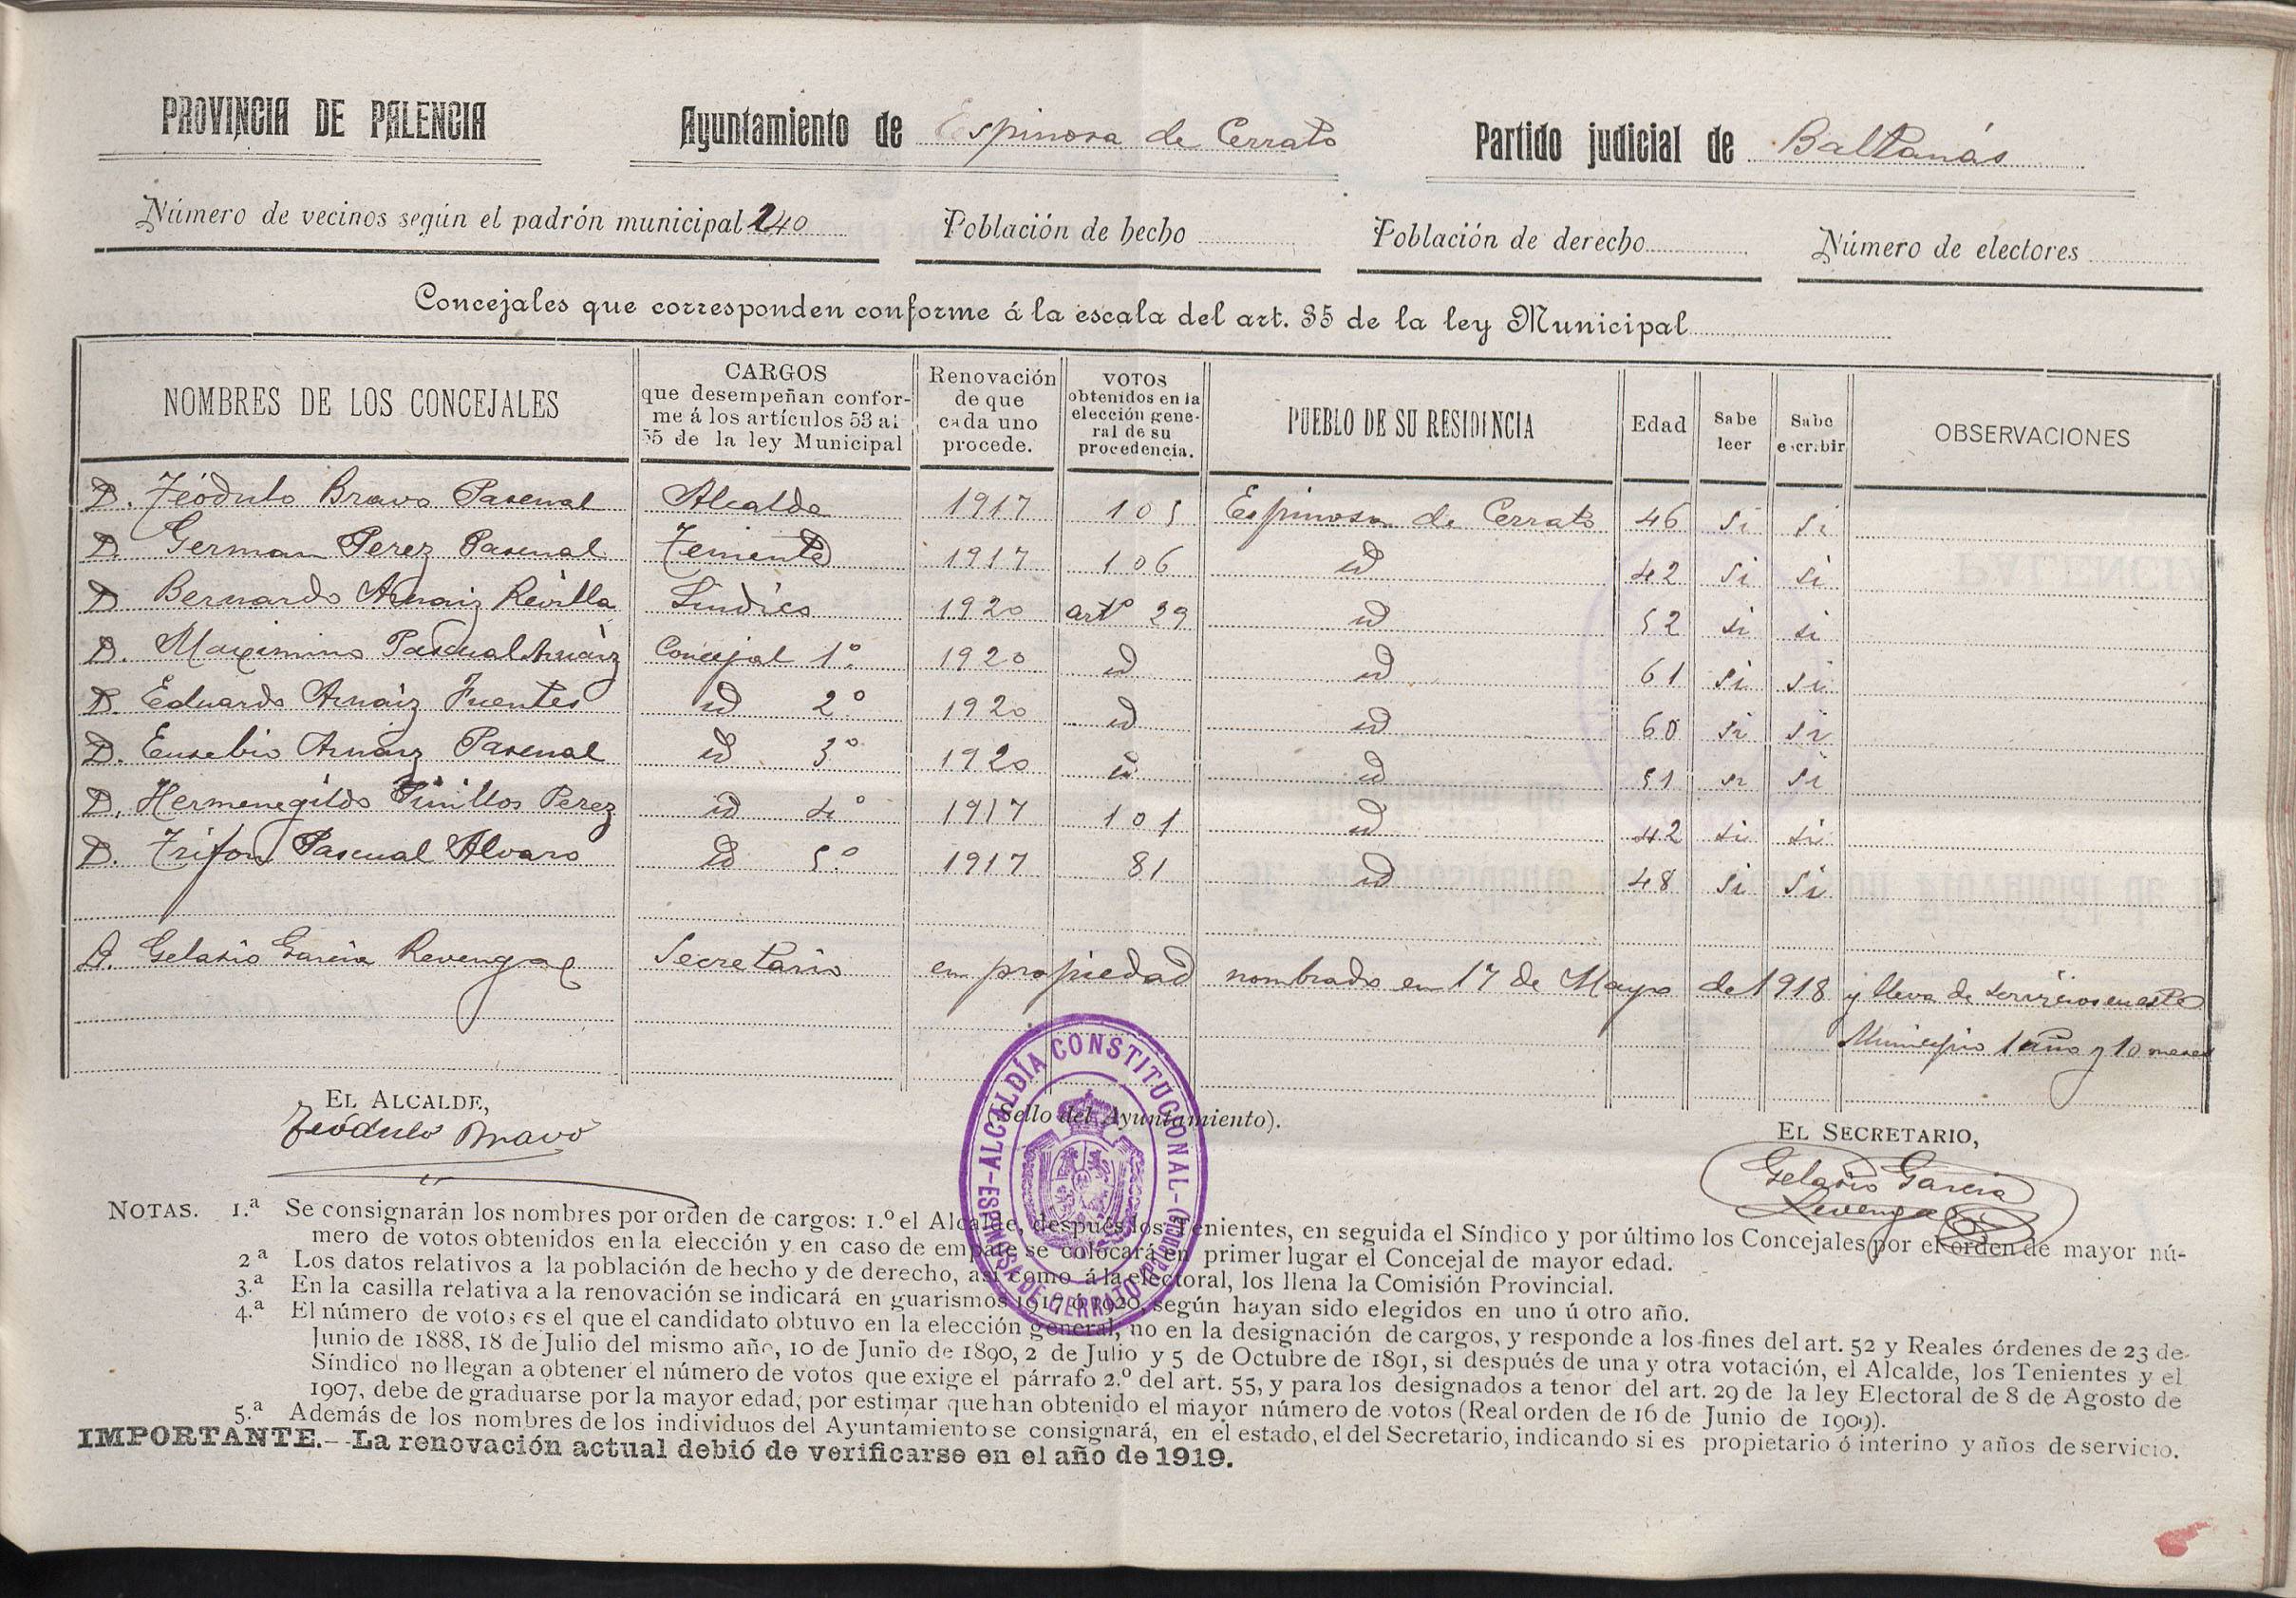 PROVINCIA DE PALENCIA Ayuntamiento de Espinosa de Cerrato Partido judicial de Baltanás
Número de vecinos según el padrón municipal 240 Población de hecho Población de derecho Número de electores
Concejales que corresponden conforme á la escala del art. 35 de la ley Municipal
NOMBRES DE LOS CONCEJALES CARGOS que desempeñan conforme á los artículos 53 al 55 de la ley Municipal Renovación de que cada uno procede. VOTOS obtenidos en la elección general de su procedencia. PUEBLO DE SU RESIDENCIA Edad Sabe leer Sabe escribir OBSERVACIONES
D. Teódulo Bravo Pascual Alcalde 1917 105 Espinosa de Cerrato 46 Si Si
D. German Perez Pascual Teniente 1917 106 id 42 Si Si
D. Bernardo Arnaiz Revilla Sindico 1920 artº 29 id 52 si si
D. Maximino Pascual Arnaiz Concejal 1º 1920 id id 61 Si Si
D. Eduardo Arnaiz Fuentes id 2º 1920 id id 60 Si Si
D. Eusebio Arnaiz Pascual id 3º 1920 id id 51 si Si
D. Hermenegildo Pinillos Perez id 4º 1917 101 id 42 si si
D. Trifon Pascual Alvaro id 5º 1917 81 id 48 Si Si
D. Gelasio Garcia Revenga Secretario en propiedad nombrado en 17 de Mayo de 1918 y lleva de servicios en este
Municipio 1 año y 10 meses
EL ALCALDE,
Teódulo Bravo
(Sello del Ayuntamiento).
ALCALDÍA CONSTITUCIONAL - ESPINOSA DE CERRATO (Palencia)
EL SECRETARIO,
Gelasio Garcia
Revenga
NOTAS. 1.ª Se consignarán los nombres por orden de cargos: 1.º el Alcalde, después los Tenientes, en seguida el Síndico y por último los Concejales por el orden de mayor nú-
mero de votos obtenidos en la elección y en caso de empate se colocará en primer lugar el Concejal de mayor edad.
2ª Los datos relativos a la población de hecho y de derecho, así como á la electoral, los llena la Comisión Provincial.
3.ª En la casilla relativa a la renovación se indicará en guarismos 1917 ó 1920, según hayan sido elegidos en uno ú otro año.
4.ª El número de votos es el que el candidato obtuvo en la elección general, no en la designación de cargos, y responde a los fines del art. 52 y Reales órdenes de 23 de
Junio de 1888, 18 de Julio del mismo año, 10 de Junio de 1890, 2 de Julio y 5 de Octubre de 1891, si después de una y otra votación, el Alcalde, los Tenientes y el
Síndico no llegan a obtener el número de votos que exige el párrafo 2.º del art. 55, y para los designados a tenor del art. 29 de la ley Electoral de 8 de Agosto de
1907, debe de graduarse por la mayor edad, por estimar que han obtenido el mayor número de votos (Real orden de 16 de Junio de 1909).
5.ª Además de los nombres de los individuos del Ayuntamiento se consignará, en el estado, el del Secretario, indicando si es propietario ó interino y años de servicio.
IMPORTANTE.--La renovación actual debió de verificarse en el año de 1919.